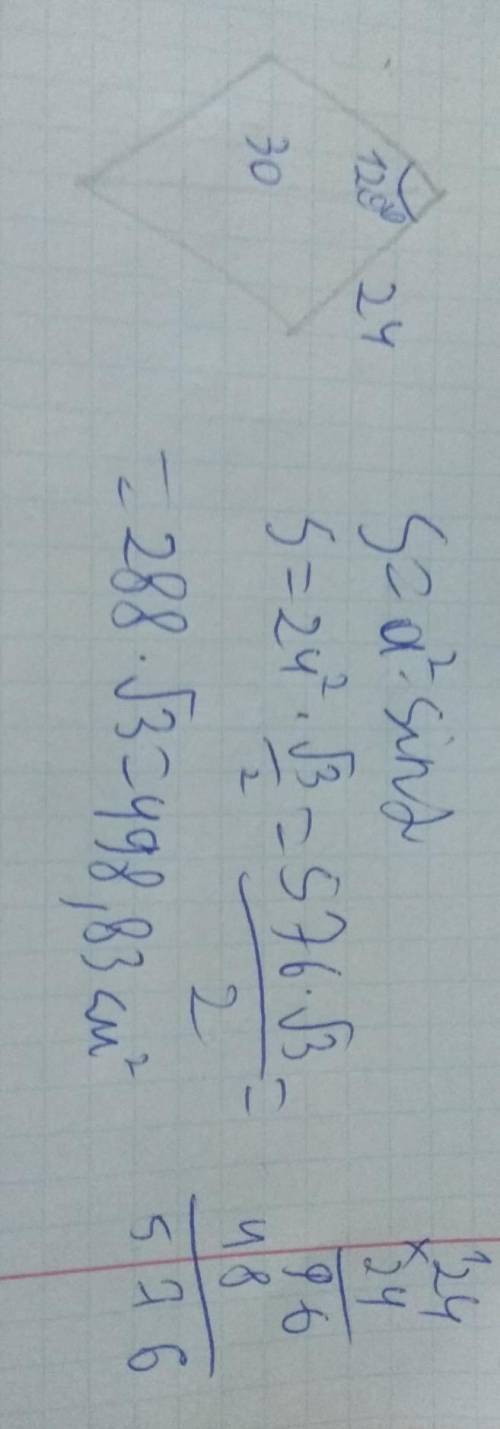 120°
24
30
S = a² · sin α
S = 24² · √3/2 = 576 · √3 / 2 =
= 288 · √3 = 498,83 см²
1
24
× 24
96
48
576